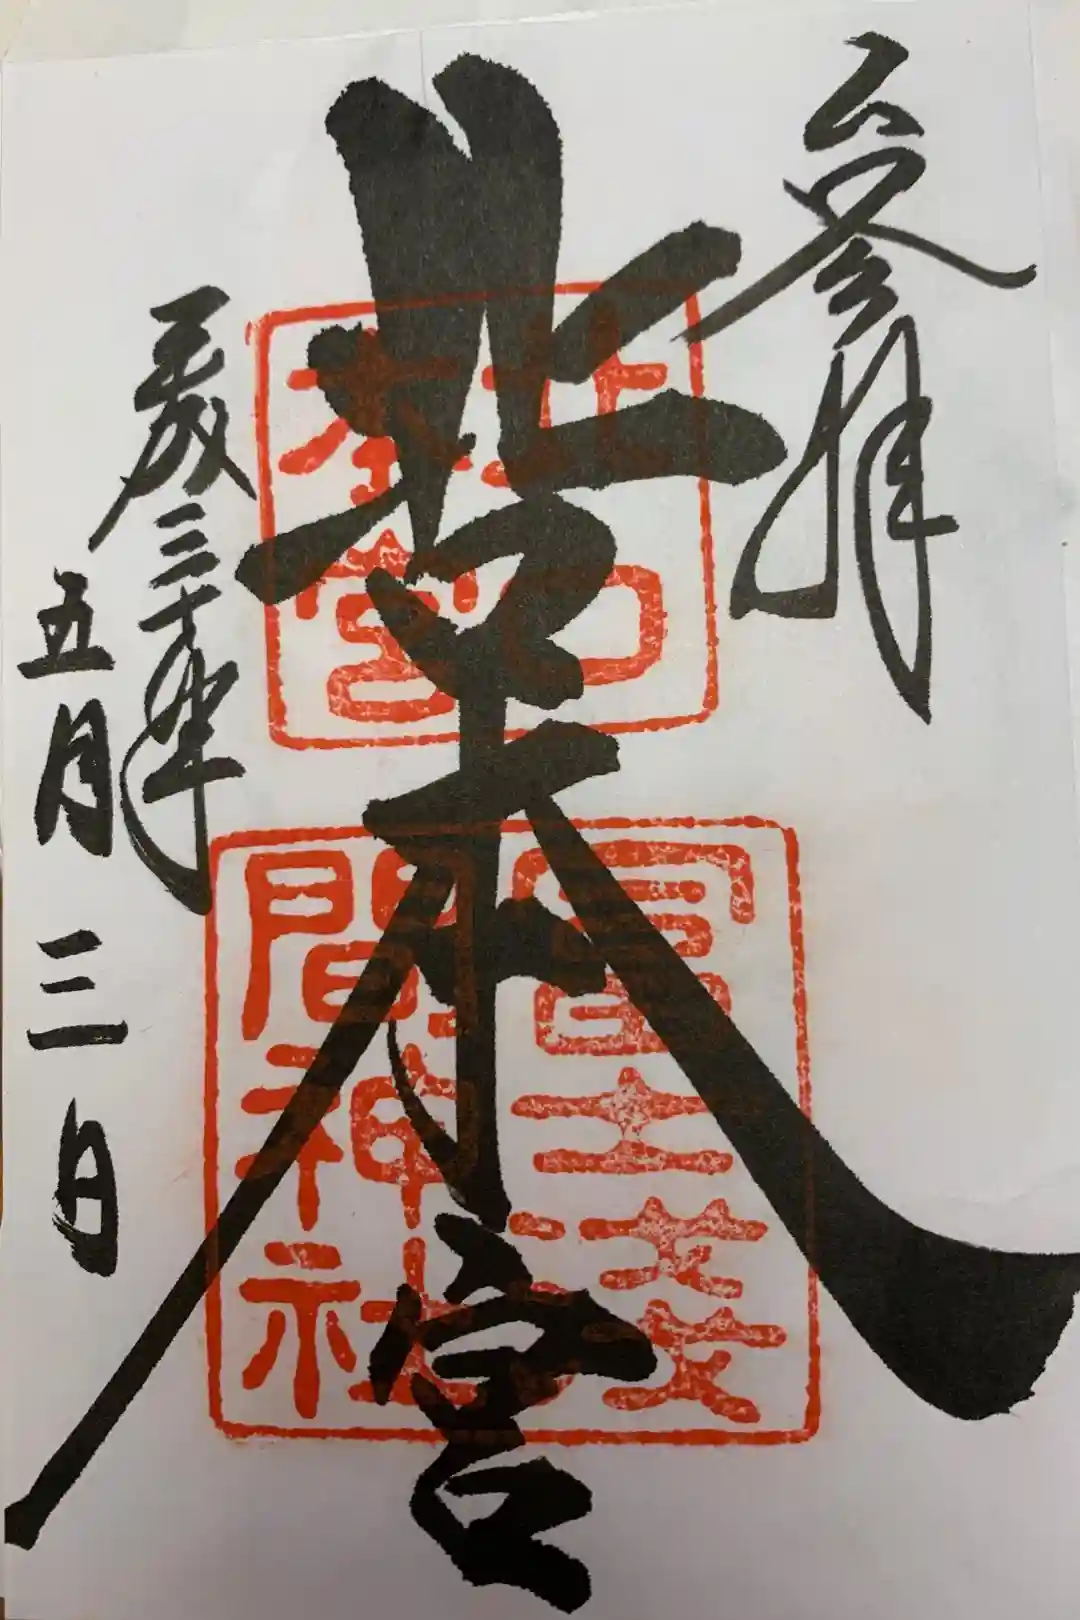 参拝
北口本宮
北口
本宮
冨士淺
間神社
平成三十年
五月三日